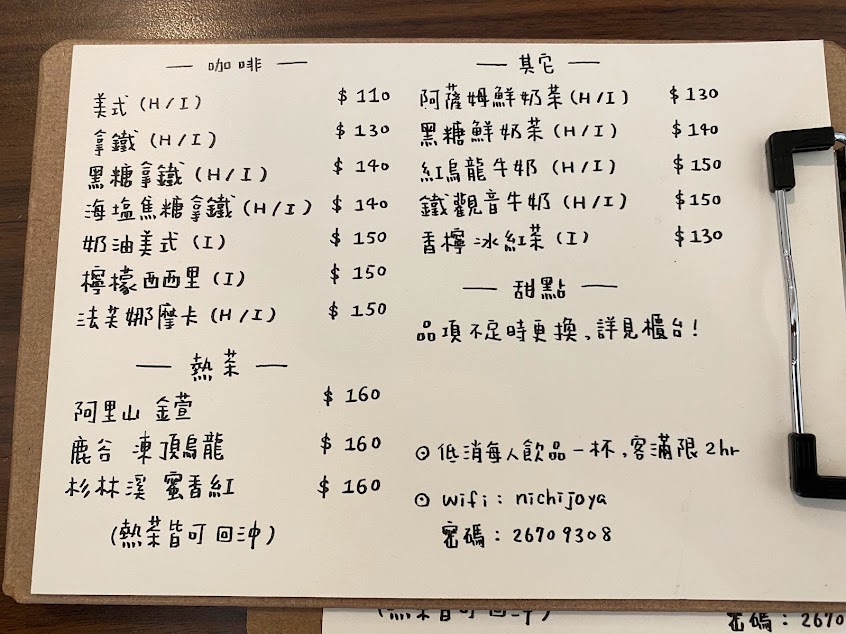 — 咖啡 —
美式 (H/I) $ 110
拿鐵 (H/I) $ 130
黑糖拿鐵 (H/I) $ 140
海塩焦糖拿鐵 (H/I) $ 140
奶油美式 (I) $ 150
檸檬西西里 (I) $ 150
法芙娜摩卡 (H/I) $ 150
— 熱茶 —
阿里山 金萱 $ 160
鹿谷 凍頂烏龍 $ 160
杉林溪 蜜香紅 $ 160
(熱茶皆可回沖)
— 其它 —
阿薩姆鮮奶茶 (H/I) $ 130
黑糖鮮奶茶 (H/I) $ 140
紅烏龍牛奶 (H/I) $ 150
鐵觀音牛奶 (H/I) $ 150
香檸冰紅茶 (I) $ 130
— 甜點 —
品項不定時更換,詳見櫃台!
⊙ 低消每人飲品一杯,客滿限2hr
⊙ wifi : nichijoya
密碼 : 26709308
(熱茶皆可回沖)
密碼 : 2670